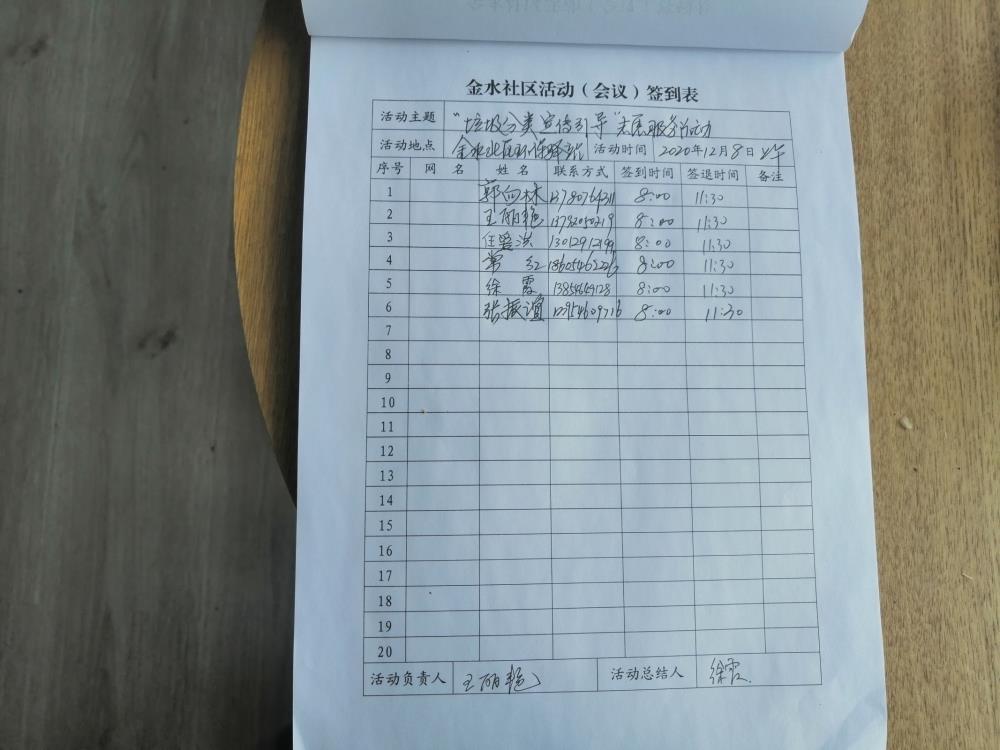 金水社区活动（会议）签到表
活动主题 “垃圾分类宣传引导”志愿服务活动
活动地点 金水社区环保驿站 活动时间 2020年12月8日上午
序号 网名 姓名 联系方式 签到时间 签退时间 备注
1 郭向林 13780764311 8:00 11:30
2 王丽艳 8:00 11:30
3 任爱洪 8:00 11:30
4 常红 8:00 11:30
5 徐霞 8:00 11:30
6 张振谊 13954609716 8:00 11:30
7
8
9
10
11
12
13
14
15
16
17
18
19
20
活动负责人 王丽艳 活动总结人 徐霞